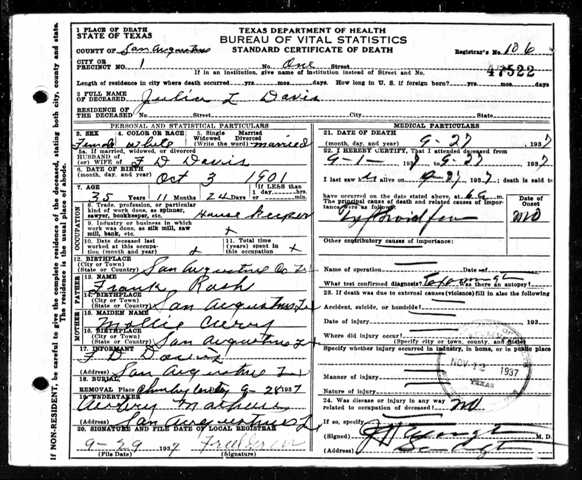 1 PLACE OF DEATH
STATE OF TEXAS
TEXAS DEPARTMENT OF HEALTH
BUREAU OF VITAL STATISTICS
STANDARD CERTIFICATE OF DEATH
COUNTY OF San Augustine
Registrar's No. 186
CITY OR PRECINCT NO. 1 No. One Street
If in an institution, give name of institution instead of Street and No.
47522
Length of residence in city where death occurred yrs. mos. days. How long in U. S. if foreign born? yrs. mos. days.
2 FULL NAME OF DECEASED Julia L Davis
RESIDENCE OF THE DECEASED No. Street City State
PERSONAL AND STATISTICAL PARTICULARS
3. SEX Female
4. COLOR OR RACE White
5. Single Married Widowed Divorced (Write the word) married
5a. If married, widowed, or divorced
HUSBAND OF (or) WIFE OF F D Davis
6. DATE OF BIRTH (month, day, and year) Oct 3 1901
7. AGE 35 Years 11 Months 24 Days
OCCUPATION
8. Trade, profession, or particular kind of work done, as spinner, sawyer, bookkeeper, etc. House Keeper
9. Industry or business in which work was done, as silk mill, saw mill, bank, etc. x
10. Date deceased last worked at this occupation (month and year)
11. Total time (years) spent in this occupation x
12. BIRTHPLACE (City or Town) (State or Country) San Augustine Co Tx
FATHER
13. NAME Frank Rash
14. BIRTHPLACE (City or Town) (State or Country) San Augustine Tx
MOTHER
15. MAIDEN NAME Mollie Curry
16. BIRTHPLACE (City or Town) (State or Country) San Augustine Tx
17. INFORMANT F D Davis
(Address) San Augustine Tx
18. BURIAL, REMOVAL 9-28 1937
19. UNDERTAKER
(Address) San Augustine Tx
20. SIGNATURE AND FILE DATE OF LOCAL REGISTRAR
9-29 1937
(File Date) (Signature)
MEDICAL PARTICULARS
21. DATE OF DEATH (month, day, and year) 9-27 1937
22. I HEREBY CERTIFY, That I attended deceased from
9-1- 193 9-27 1937
I last saw 9-27 1937 death is said to
have occurred on the date stated above, at
The principal cause of death and related causes of importance were as follows:
Date of Onset
Other contributory causes of importance:
Name of operation Date of
What test confirmed diagnosis? Was there an autopsy?
23. If death was due to external causes (violence) fill in also the following:
Accident, suicide, or homicide?
Date of injury 193
Where did injury occur?
(Specify city or town, county, and state)
Specify whether injury occurred in industry, in home, or in public place
Manner of injury
Nature of injury
24. Was disease or injury in any way related to occupation of deceased? NO
If so, specify
(Signed) M. D.
(Address)
1937
TEXAS
IF NON-RESIDENT, be careful to give the complete residence of the deceased, stating both city, county and state. The residence is the usual place of abode.